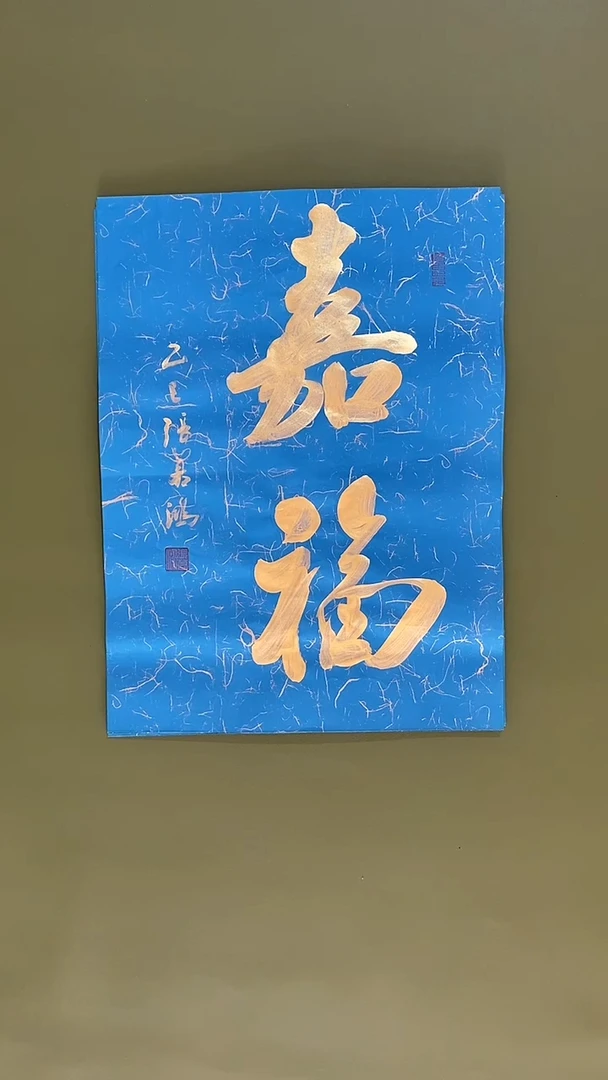 嘉福
乙巳張嘉鴻